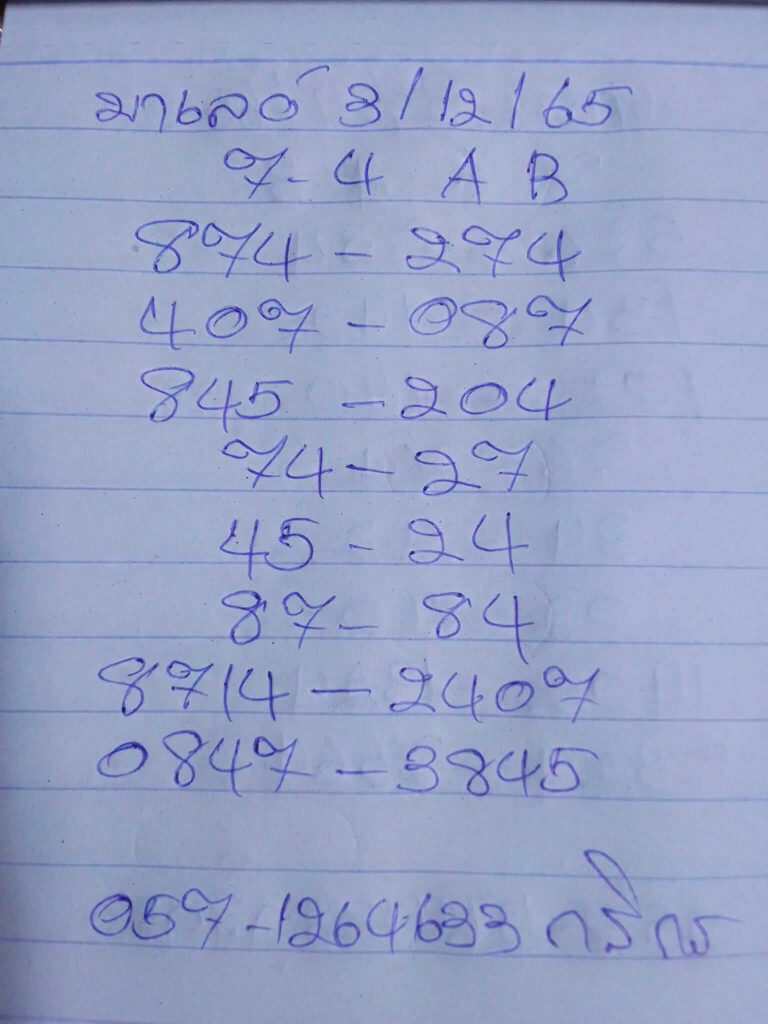 มาเลย์ 3/12/65
7-4 A B
874 - 274
407 - 087
845 - 204
74 - 27
45 - 24
87 - 84
8714 - 2407
0847 - 3845
057-1264633